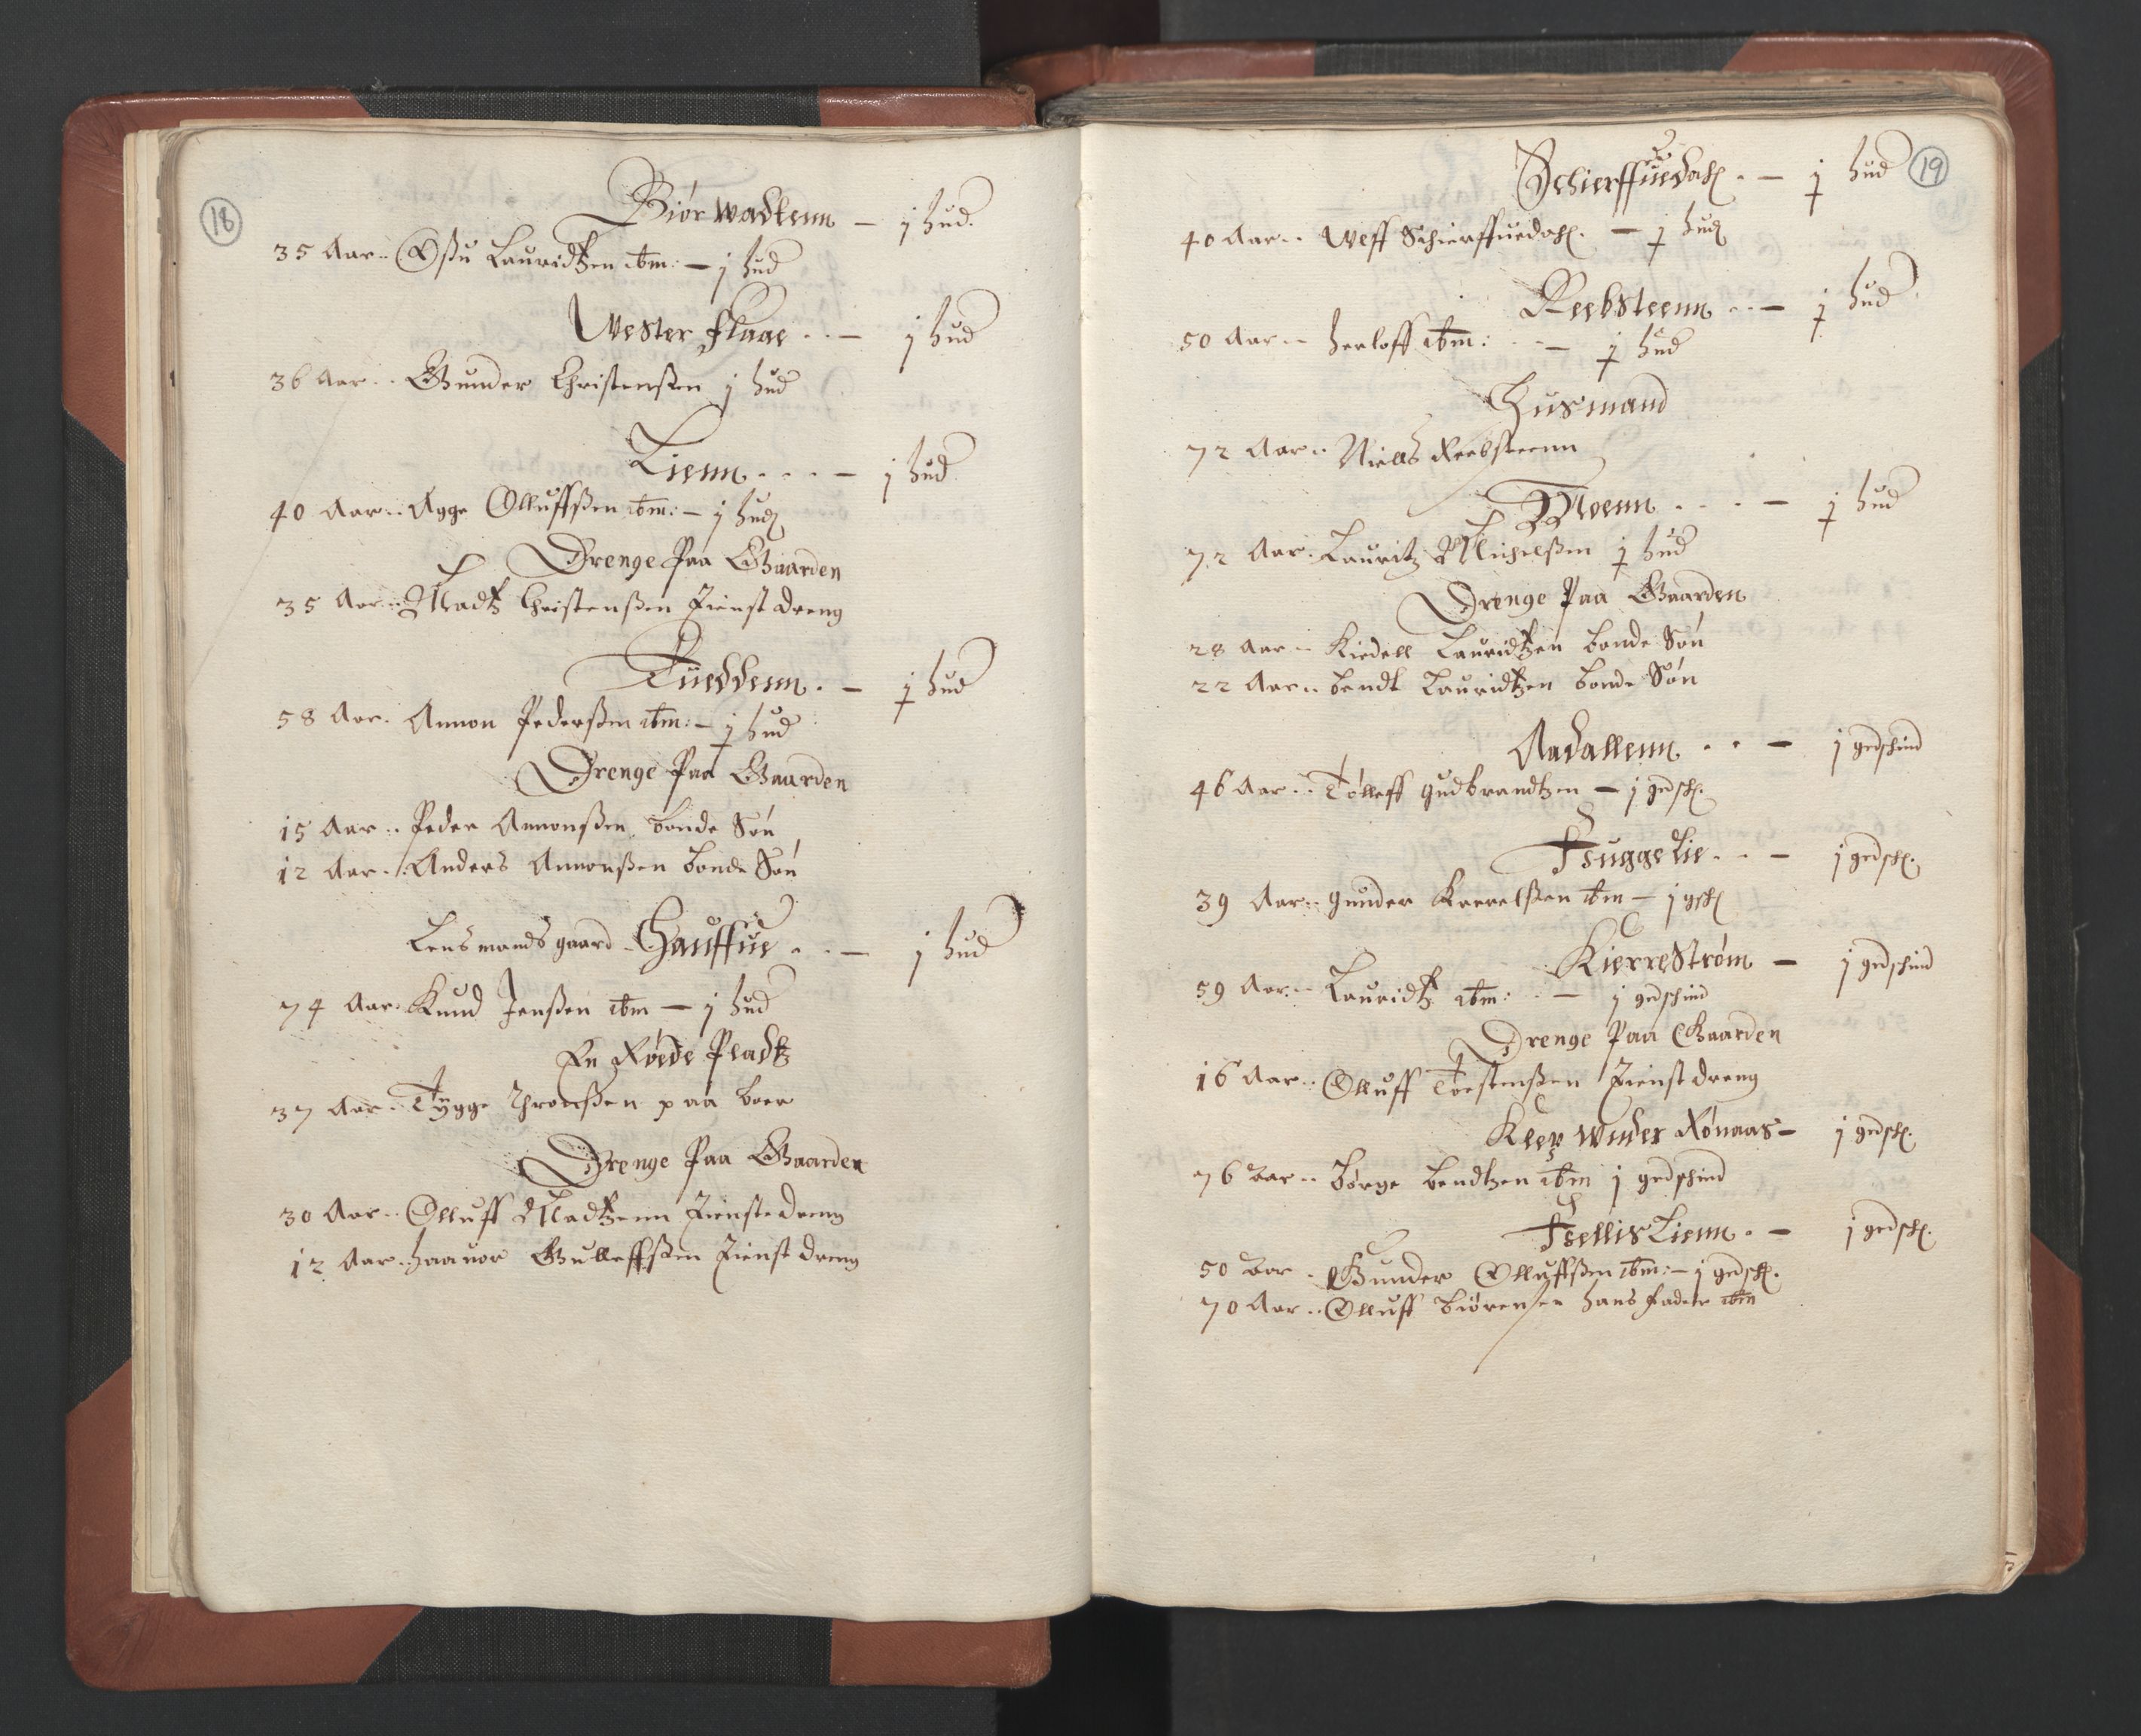 18
Biørwadlenn — j hud.
35 Aar.. Oßu Lauridtzen ibm: — j hud
Wester Flaae . . — j hud
36 Aar . . Gunder Christenßen j hud
Lienn . . . . — j hud
40 Aar .. Agge Olluffßen ibm: — j hud
Drenge Paa Gaarden
35 Aar .. Madtz Christenßen Tienst dreng
Tueddenn . — j hud
58 Aar . Amon Pederßen ibm: — j hud
Drenge Paa Gaarden
15 Aar .. Peder Amonßen bonde Søn
12 Aar .. Anders Amonßen bonde Søn
Lensmands gaard Hauffue . . — j hud
74 Aar . Knud Jenßen ibm — j hud
En Røede Pladtz
37 Aar . Tygge paa boer
Drenge Paa Gaarden
30 Aar .. Olluff Madtzenn Tienste dreng
12 Aar .. haauor Gulleffßen Tienst dreng
19
Schierffuedahl . — j hud
40 Aar .. Weff Schierffuedahl . — j hud
Reebsteenn . . — j hud
50 Aar .. herloff ibm: . . — j hud
Husmand
72 Aar .. Niells Reebsteenn
Moenn . . . — j hud
72 Aar . Lauritz Michelßen j hud
Drenge Paa Gaarden
28 Aar .. Kiedell Lauridtzen bonde Søn
22 Aar .. bendt Lauridtzen bonde Søn
Aadallenn . . — j gedschind
46 Aar .. Tølleff gudbrandtzen — j gedsch.
Tsuggelie . . — j gedsch.
39 Aar .. gunder Karrelßen ibm — j gsch
KierreStrøm — j gedschind
59 Aar .. Lauridtz ibm: . . — j gedschind
Drenge Paa Gaarden
16 Aar .. Olluff Toestenßen Tienst dreng
Kleep wnder Rønaas — j gedsch.
76 Aar .. børge bendtzen ibm j gedschind
TsellisLienn . — j gedsch.
50 Aar . Gunder Olluffßen ibm: — j gedsch.
70 Aar .. Olluff biørensen hans fader ibm